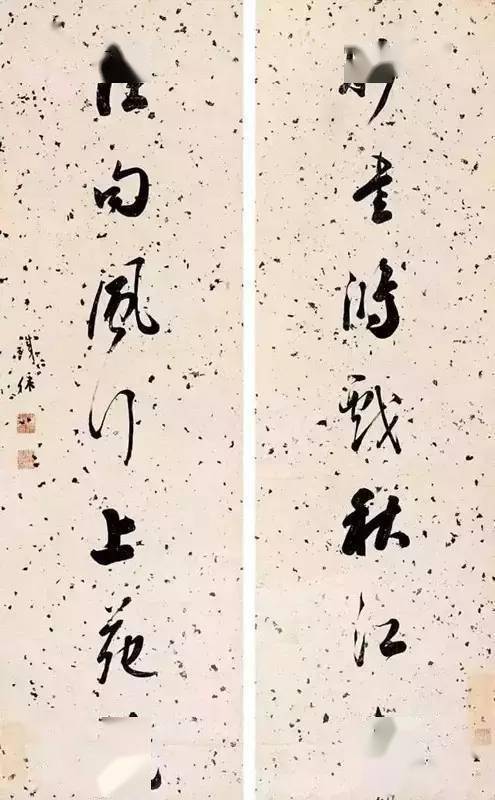 書鴻戲秋江
句風行上苑
鐵保